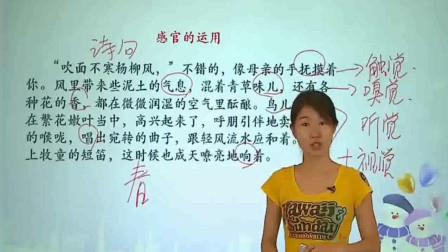 诗句
感官的运用
“吹面不寒杨柳风,”不错的,像母亲的手抚摸着 触觉
你。风里带来些泥土的气息,混着青草味儿,还有各 嗅觉
种花的香,都在微微润湿的空气里酝酿。鸟儿
在繁花嫩叶当中,高兴起来了,呼朋引伴地卖 听觉
的喉呢,唱出宛转的曲子,跟轻风流水应和着。
上牧童的短笛,这时候也成天嘹亮地响着。 +视觉
春
HAWAII